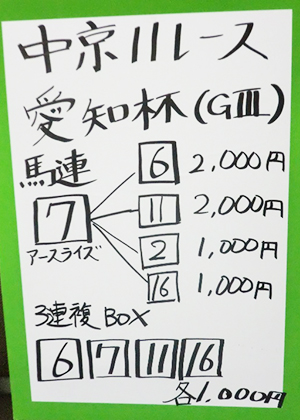 中京11レース
愛知杯(GⅢ)
馬連
7
アースライズ
6 2,000円
11 2,000円
2 1,000円
16 1,000円
3連複BOX
6 7 11 16
各1,000円